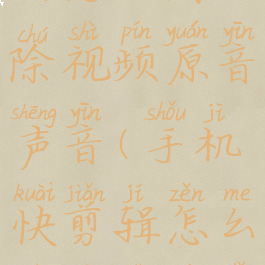 chú shì pín yuán yīn
除视频原音
shēng yīn shǒu jī
声音(手机
kuài jiǎn jí zěn me
快剪辑怎么